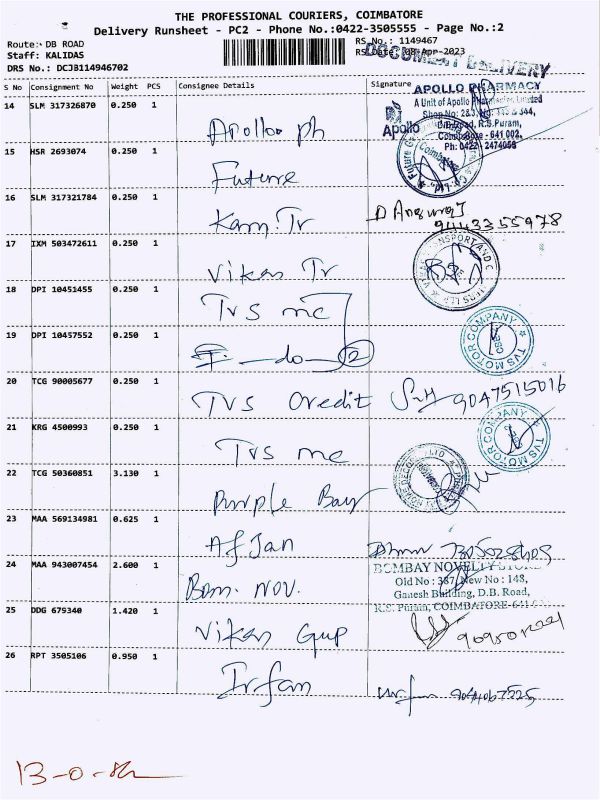 THE PROFESSIONAL COURIERS, COIMBATORE
Delivery Runsheet - PC2 - Phone No.:0422-3505555 - Page No.:2
Route:- DB ROAD
Staff: KALIDAS
DRS No.: DCJB114946702
RS No.: 1149467
RS Date: 08-Apr-2023
DOCUMENT DELIVERY
S No Consignment No Weight PCS Consignee Details Signature
14 SLM 317326870 0.250 1 Apolloo ph
APOLLO PHARMACY
A Unit of Apollo Pharmacies Limited
D.B.Road, R.S.Puram,
Coimbatore - 641 002,
Ph: 0422 - 2474058
Apollo
15 HSR 2693074 0.250 1 Future
Coimbatore
16 SLM 317321784 0.250 1 Kam. Tr
9443355978
17 IXM 503472611 0.250 1 Vikas Tr
18 DPI 10451455 0.250 1 TVS mc
19 DPI 10457552 0.250 1 do 2
TVS MOTOR COMPANY
20 TCG 90005677 0.250 1 TVS Credit 9047515016
21 KRG 4500993 0.250 1 TVS mc
TVS MOTOR COMPANY
22 TCG 50360851 3.130 1 Purple Bay
23 MAA 569134981 0.625 1 Afjan
24 MAA 943007454 2.600 1 Bom. Nov.
BOMBAY NOVELTY STORE
Old No : 387, New No : 148,
Ganesh Building, D.B. Road,
R.S. Puram, COIMBATORE-641
25 DDG 679340 1.420 1 Vikas Gup
26 RPT 3505106 0.950 1 Irfan